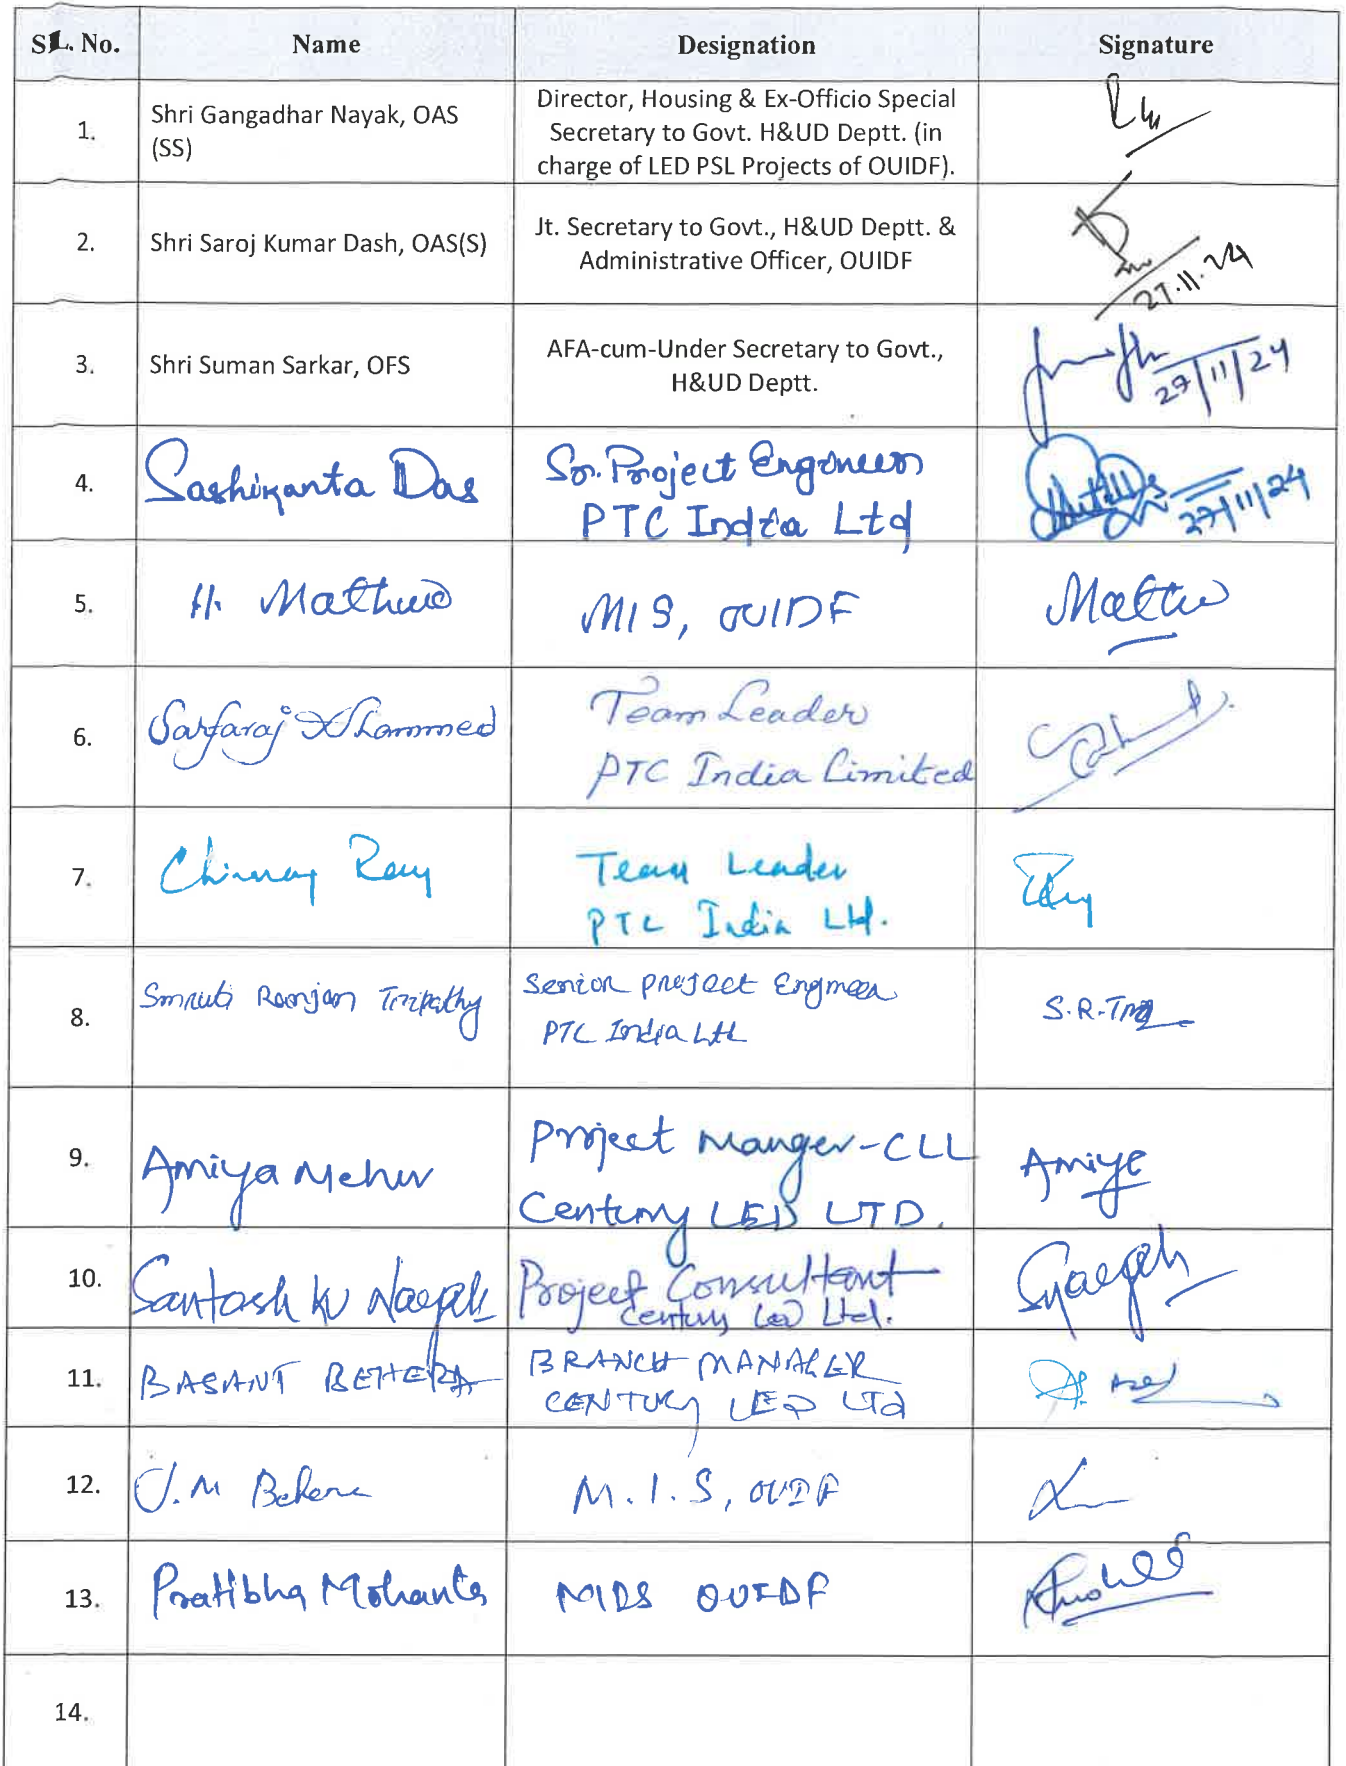 SL. No. Name Designation Signature
1. Shri Gangadhar Nayak, OAS (SS) Director, Housing & Ex-Officio Special
Secretary to Govt. H&UD Deptt. (in
charge of LED PSL Projects of OUIDF).
2. Shri Saroj Kumar Dash, OAS(S) Jt. Secretary to Govt., H&UD Deptt. &
Administrative Officer, OUIDF
27.11.24
3. Shri Suman Sarkar, OFS AFA-cum-Under Secretary to Govt.,
H&UD Deptt.
27/11/24
4. Sashikanta Das Sr. Project Engineer
PTC India Ltd
27/11/24
5. H. Mathur MIS, OUIDF
6. Sarfaraj Team Leader
PTC India Limited
7. Chinmay Ray Team Leader
PTC India Ltd.
8. Smruti Ranjan Tripathy Senior Project Engineer
PTC India Ltd
S.R.
9. Amiya Meher Project Manger-CLL
Century LED LTD.
Amiya
10. Santosh Ku Nayak Project Consultant
Century Led Ltd.
11. BASANT BEHERA BRANCH MANAGER
CENTURY LED Ltd
12. J.M Behera M.I.S, OUIDF
13. Pratibha Mohanty OUIDF
14.